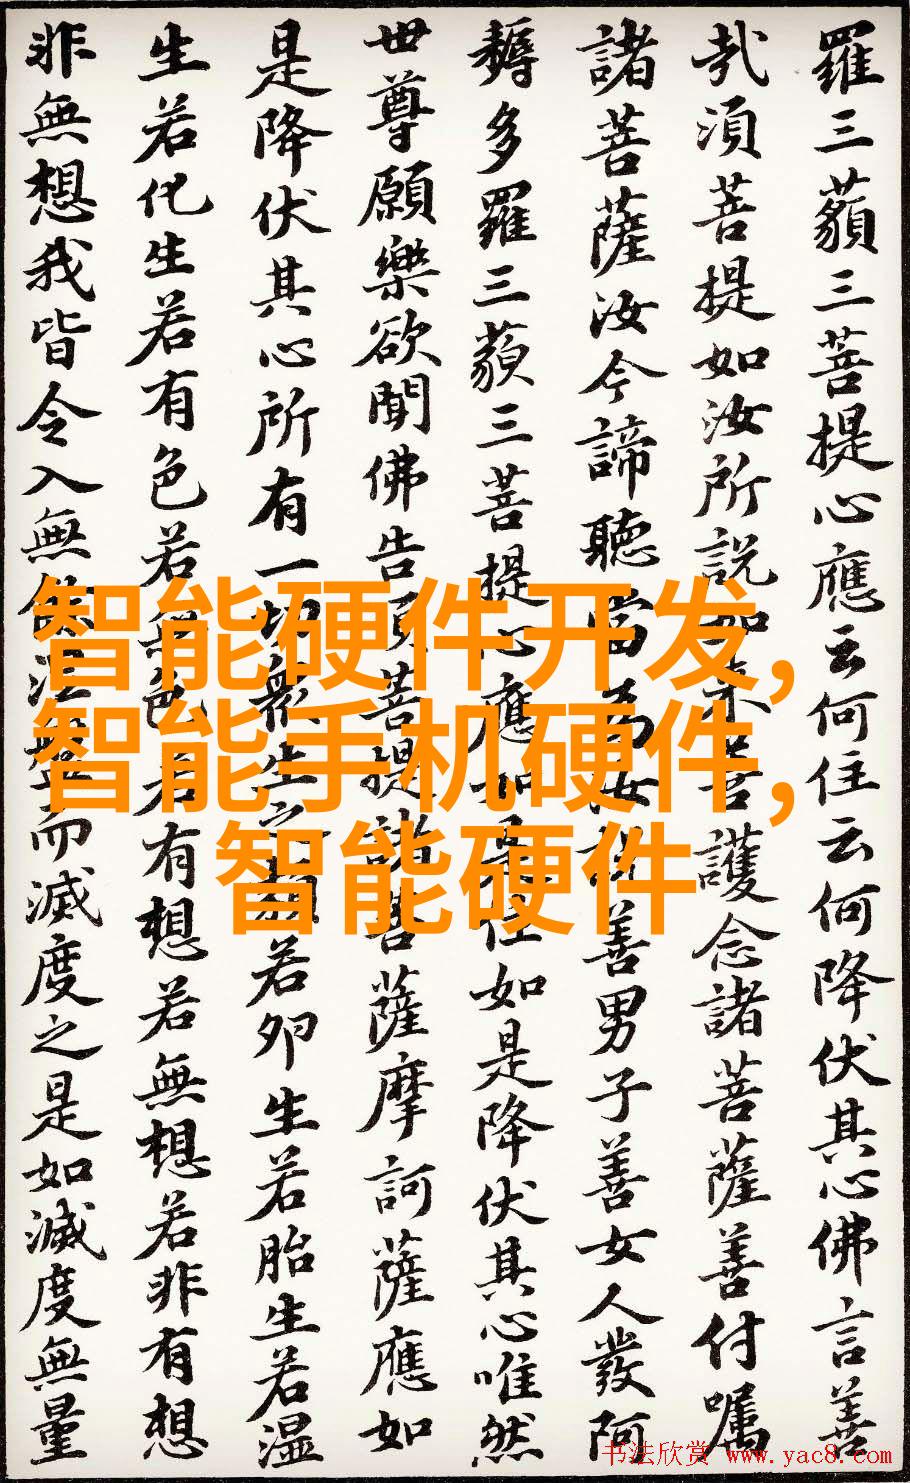 羅三藐三菩提心應云何住云何降伏其心佛言善
哉須菩提如汝所説如来善護念諸菩薩善付嘱
諸菩薩汝今諦聽當為汝説善男子善女人發阿
耨多羅三藐三菩提心應如是住如是降伏其心唯然
世尊願樂欲聞佛告須菩提諸菩薩摩訶薩應如
是降伏其心所有一切衆生之類若卵生若胎生若湿
生若化生若有色若無色若有想若無想若非有想
非無想我皆令入無餘涅槃而滅度之是如滅度無量
智能硬件开发,
智能手机硬件,
智能硬件
书法欣赏 www.yac8.com